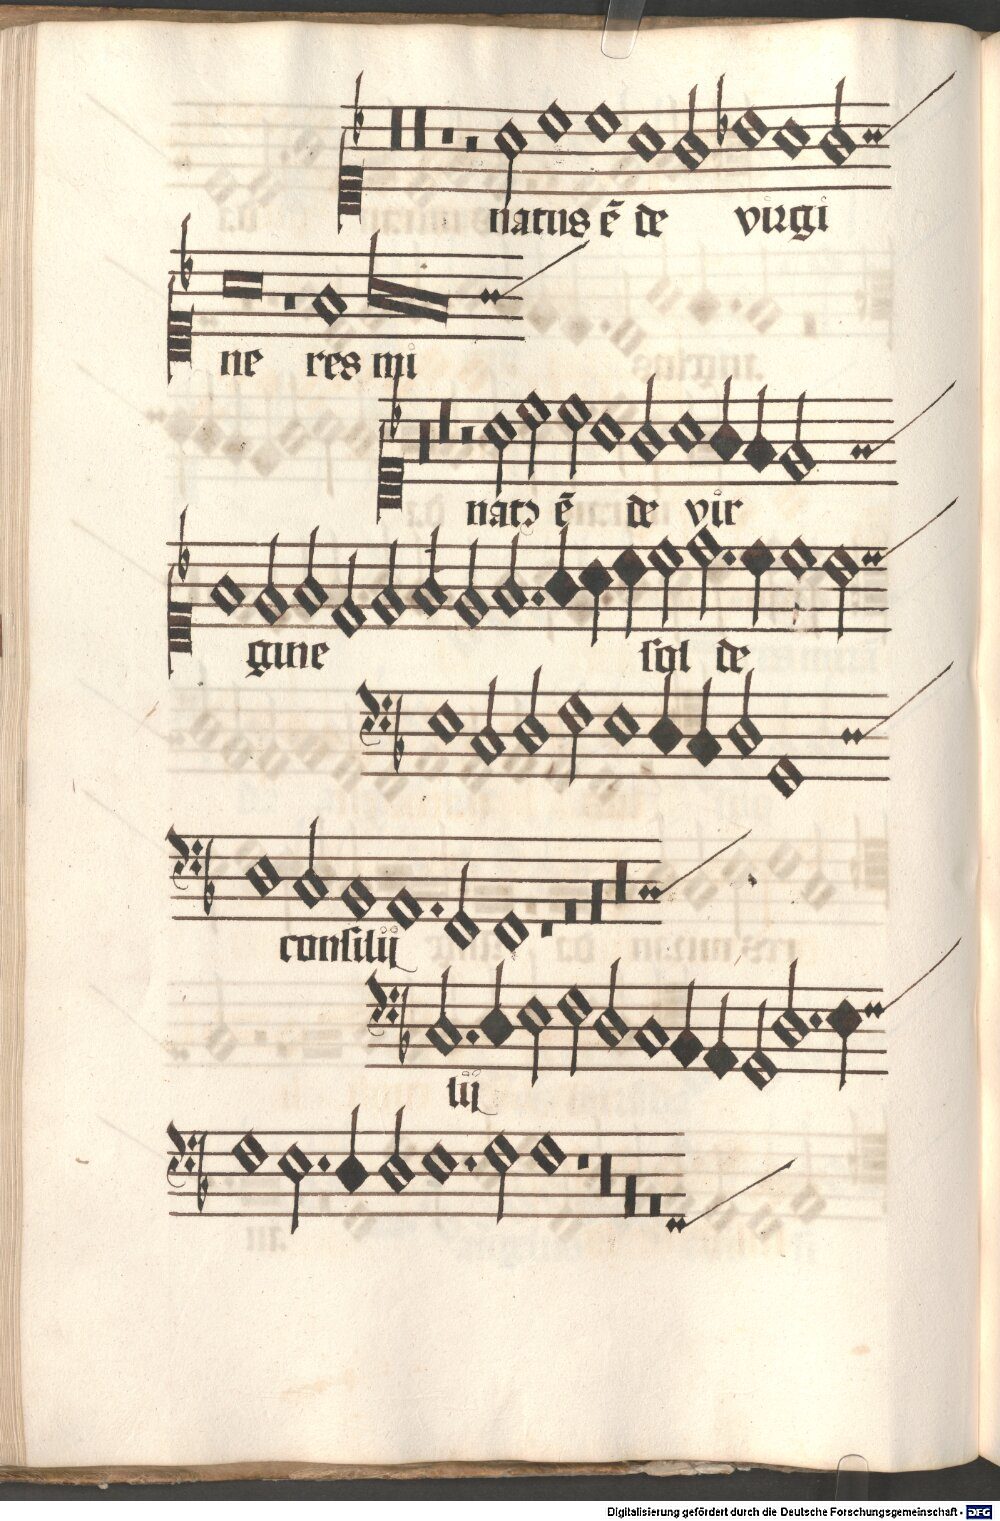 natus ē de virgi
ne res mi
natꝰ ē de vir
gine sol de
consilij
lij
Digitalisierung gefördert durch die Deutsche Forschungsgemeinschaft - DFG